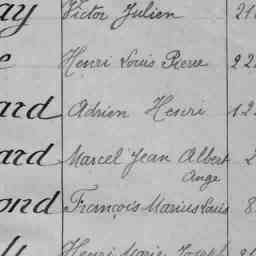 ay Victor Julien 21
e Henri Louis Pierre 22
ard Adrien Henri 12
ard Marcel Jean Albert 2
Ange
ond François Marius Louis 8
Henri Marie Joseph